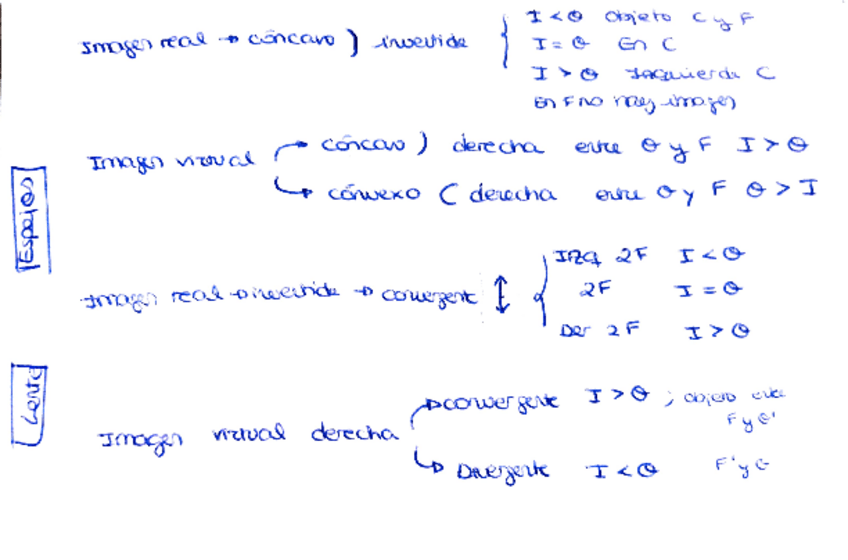 Imagen real → cóncavo ) invertida { I < O objeto C y F
I = O En C
I > O Izquierda C
En F no hay imagen
Espejos
Imagen virtual → cóncavo ) derecha entre O y F I > O
↳ cónvexo ( derecha entre O y F O > I
Imagen real → invertida → convergente ↕ { IZQ 2F I < O
2F I = O
Der 2F I > O
Lente
Imagen virtual derecha → convergente I > O ; objeto entre
F y O'
↳ Divergente I < O F' y O